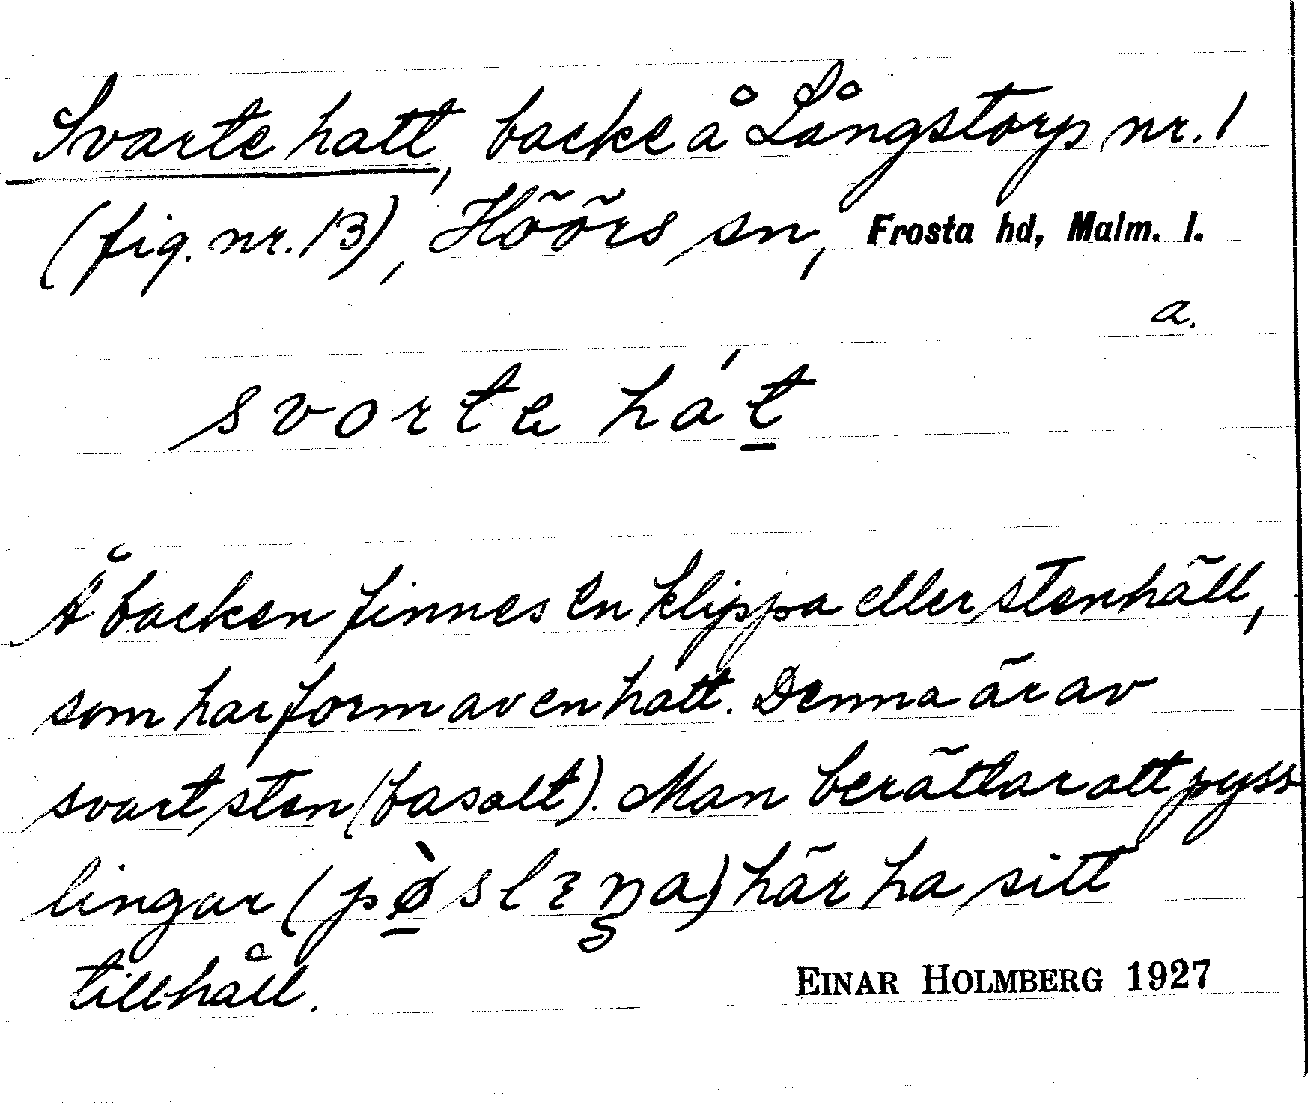 Svarte hatt, backe å Långstorp nr. 1
(fig. nr. 13), Höörs sn, Frosta hd, Malm. l.
a.
svorte hát
Å backen finnes en klippa eller stenhäll,
som har form av en hatt. Denna är av
svart sten (basalt). Man berättar att pyss
lingar (pø̀slɛŋa) här ha sitt
tillhåll.
EINAR HOLMBERG 1927